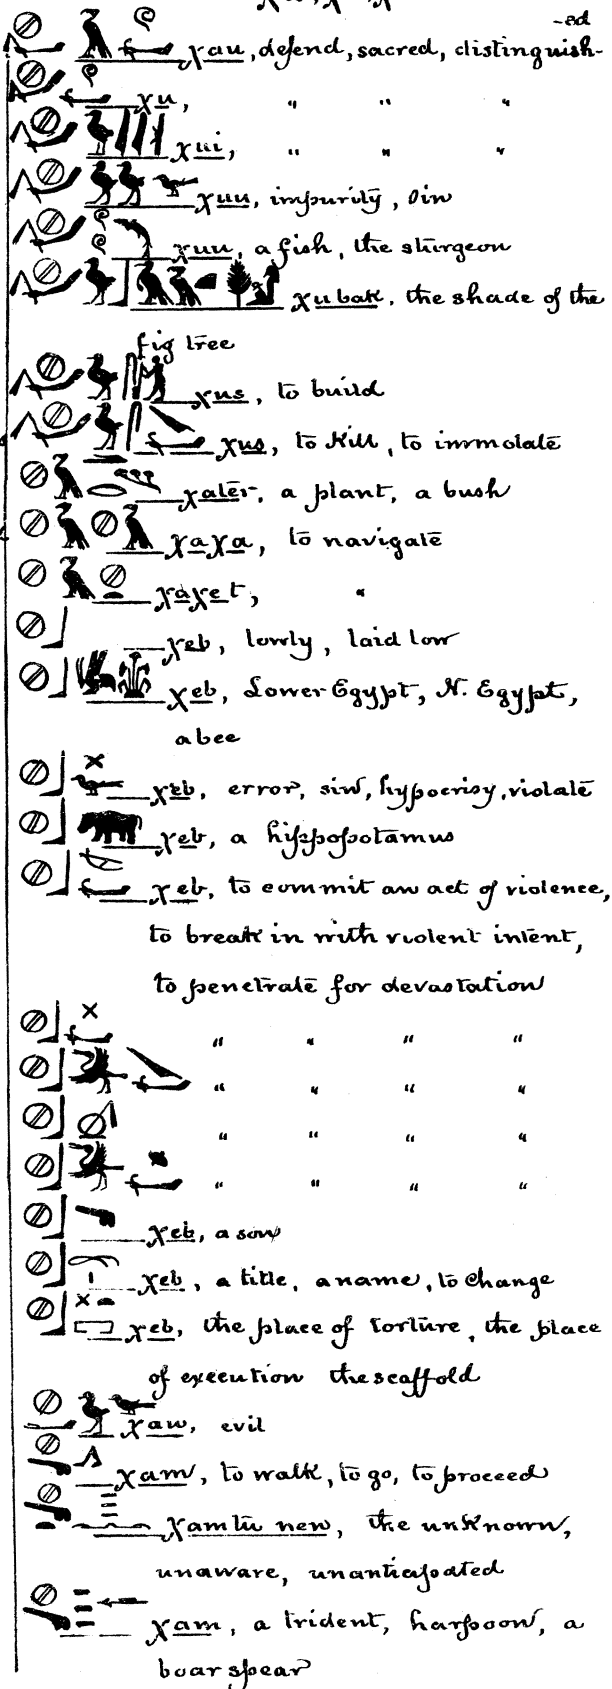 -ed
χau, defend, sacred, distinguish-
χu, " " "
χui, " " "
χuu, impurity, sin
χuu, a fish, the sturgeon
χubak, the shade of the
fig tree
χus, to build
χus, to kill, to immolate
χater, a plant, a bush
χaχa, to navigate
χaχet, "
χeb, lowly, laid low
χeb, Lower Egypt, N. Egypt,
a bee
χeb, error, sin, hypocrisy, violate
χeb, a hippopotamus
χeb, to commit an act of violence,
to break in with violent intent,
to penetrate for devastation
" " " "
" " " "
" " " "
" " " "
χeb, a son
χeb, a title, a name, to change
χeb, the place of torture, the place
of execution the scaffold
χaw, evil
χam, to walk, to go, to proceed
χamtu new, the unknown,
unaware, unanticipated
χam, a trident, harpoon, a
boar spear